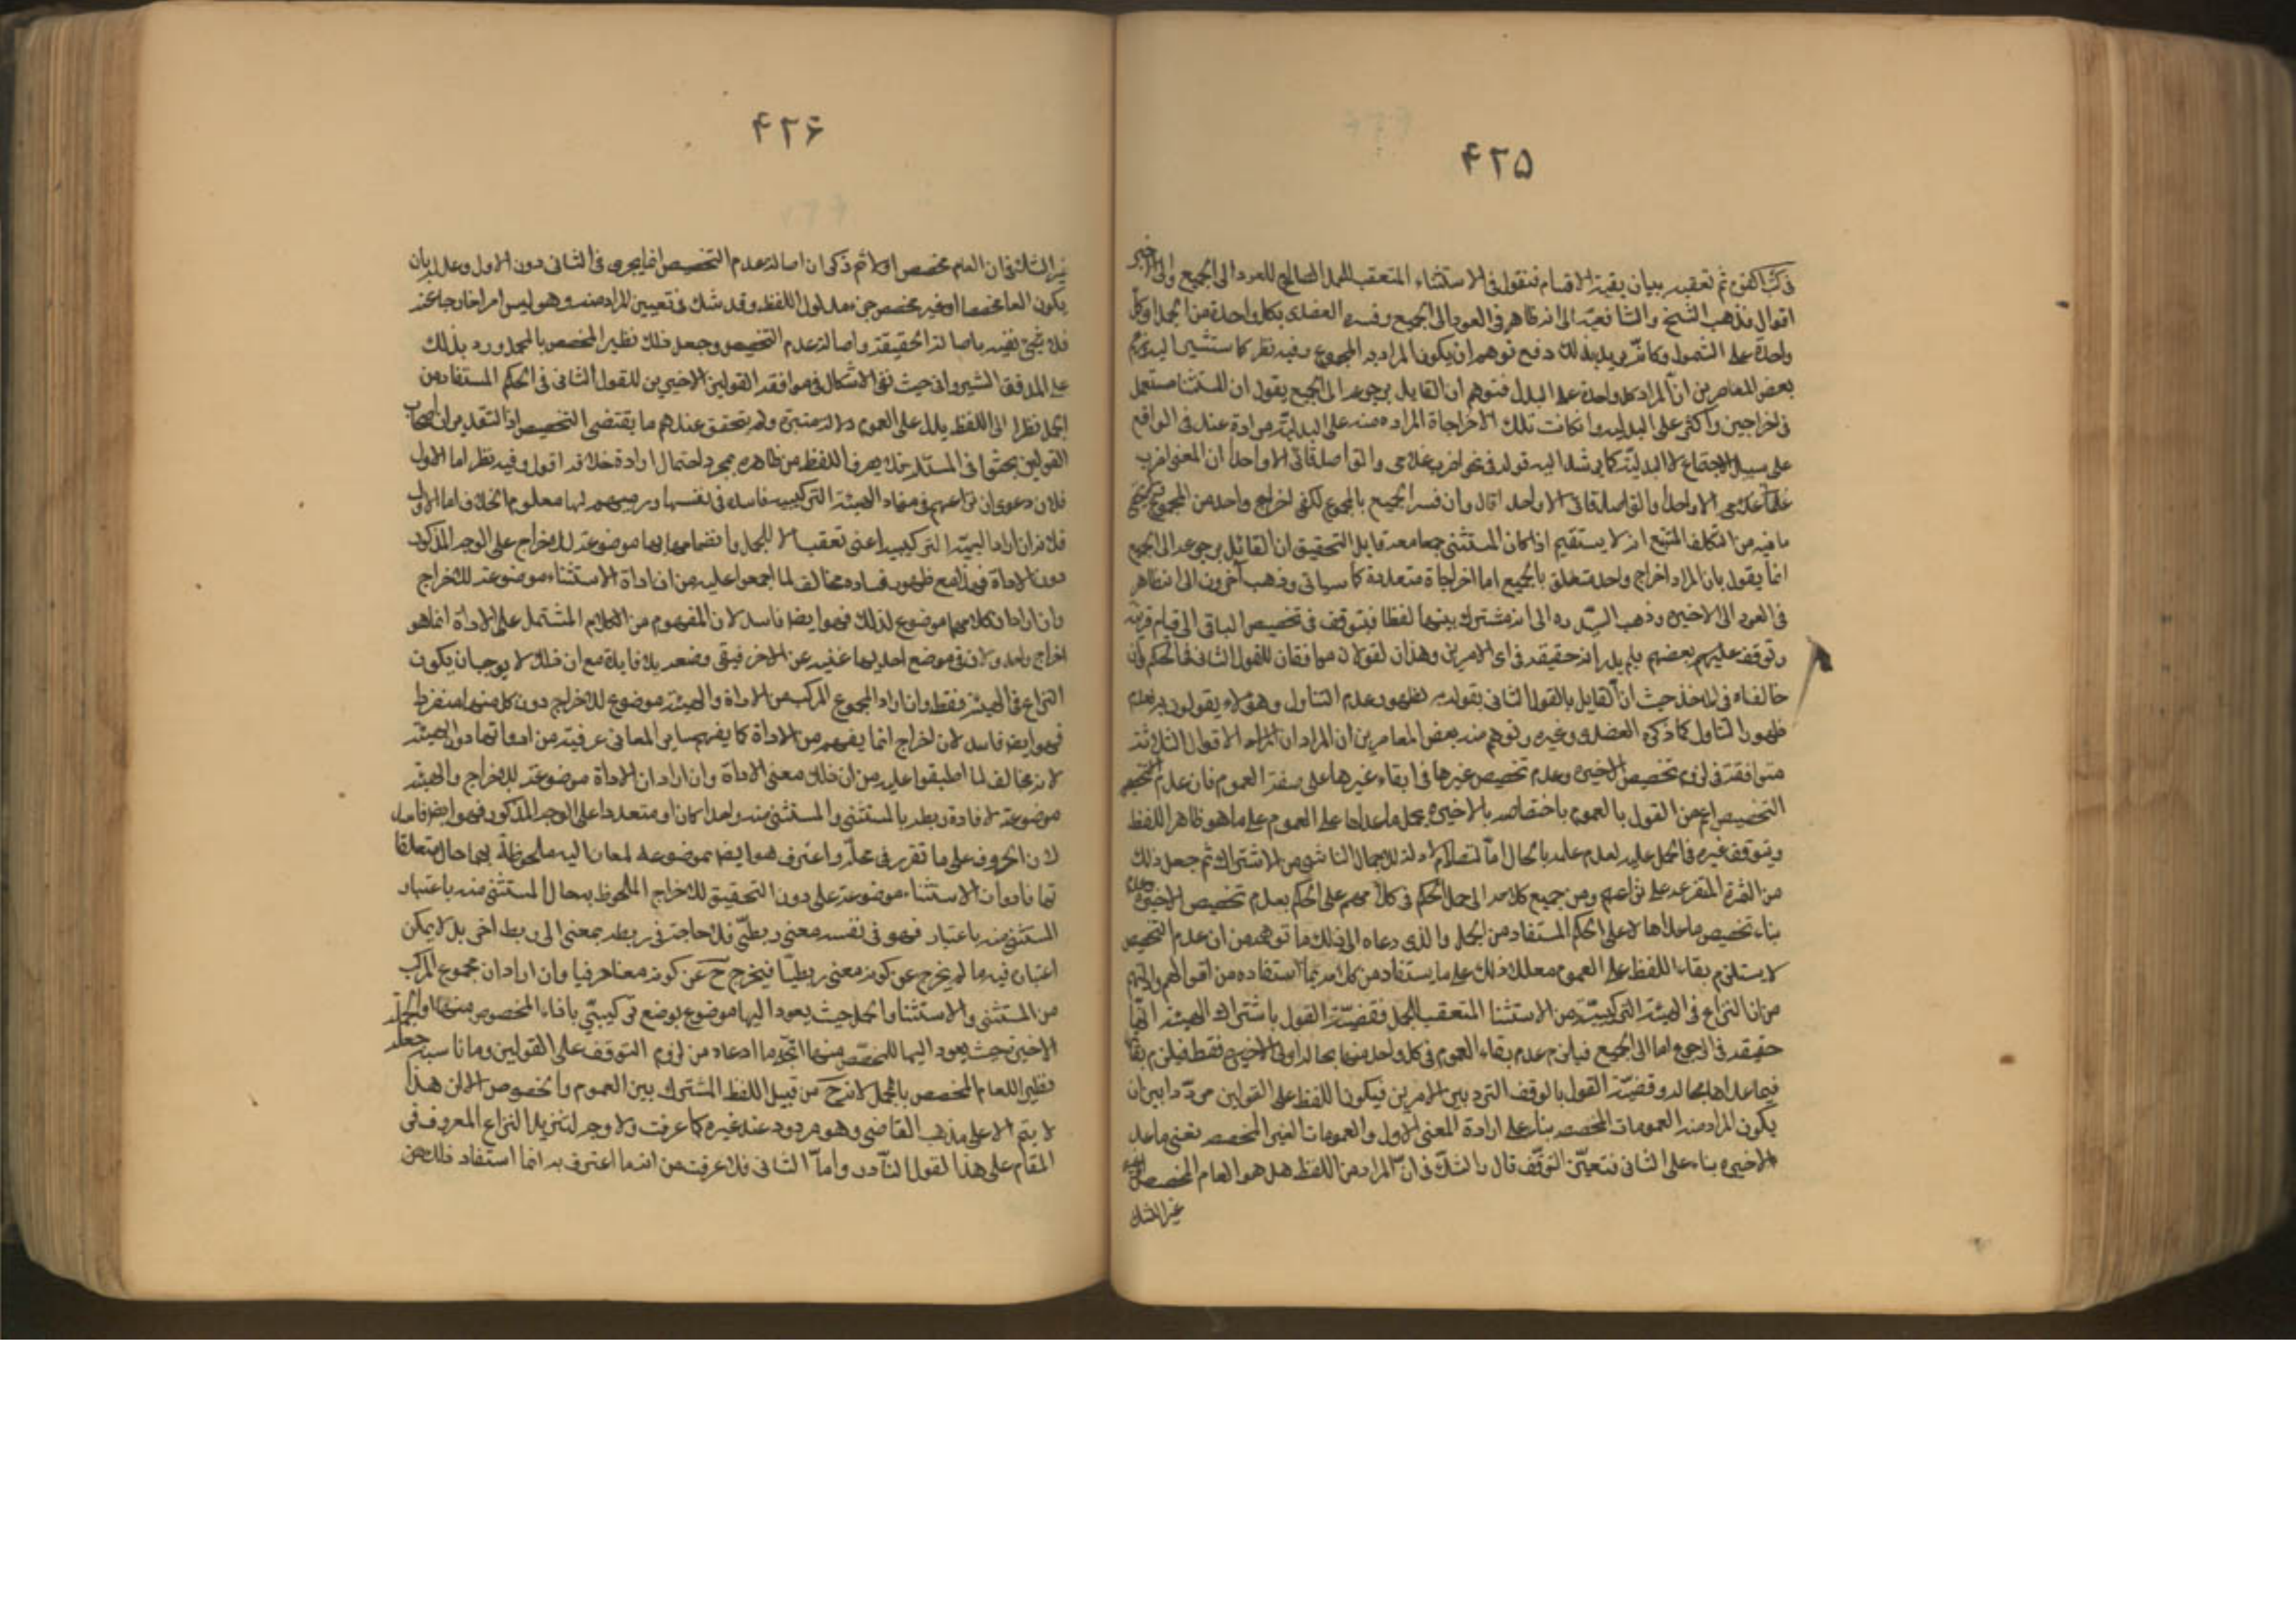 ۴۲۵
في كتاب ثم تعقبه ببيان بقية الاقسام فنقول في الاستثناء المتعقب للجمل الصالح للعود الى الجميع والى الاخير
اقوال فذهب الشيخ والشافعية الى انه ظاهر في العود الى الجميع وفسره العضدى بكل واحدة من الجمل اوكل
واحدة على الشمول وكانه يريد بذلك دفع توهم ان يكون المراد به المجموع وفيه نظر كما ستشير اليه وزعم
بعض المعاصرين ان المراد كل واحدة على البدل فتوهم ان القايل برجوعه الى الجميع يقول ان المستثنا مستعمل
في اخراجين واكثر على البدلية وانكانت تلك الاخراجاة المراده منه على البدلية مرادة عنده في الواقع
على سبيل الاجتماع لا البدلية كما يرشد اليه قوله في نحو اضرب غلامى والق اصدقائى الا واحدا ان المعنى اضرب
غلامى الا واحدا والق اصدقائى الا واحدا قال وان فسر الجميع بالمجموع لكفى اخراج واحد من المجموع
ما فيه من التكلف المتبع انه لا يستقيم اذا كان المستثنى جمعا معه قابل التحقيق ان القائل برجوعه الى الجميع
انما يقول بان المراد اخراج واحد متعلق بالجميع اما اخراجاة متعددة كما سياتى وذهب آخرون الى انه ظاهر
في العود الى الاخيرة وذهب السيد ره الى انه مشترك بينهما لفظا فيتوقف في تخصيص الباقى الى قيام قرينة
وتوقف عليهم بعضهم فلم يدر انه حقيقة في اى الامرين وهذان القولان موافقان للقول الثانى في الحكم وان
خالفاه في الماخذ حيث ان القايل بالقول الثانى يقول به لظهور عدم التناول وهؤلاء يقولون به لعدم
ظهور التناول كما ذكره العضدى وغيره وتوهم منه بعض المعاصرين ان المراد ان هؤلاء الاقوال الثلاثة
متوافقة في لزوم تخصيص الاخيرة وعدم تخصيص غيرها في ابقاء غيرها على صفة العموم فان عدم
التخصيص اعم من القول بالعموم باختصاصه بالاخيرة يحمل ما عداها على العموم على ما هو ظاهر اللفظ
ويتوقف غيره في الحمل عليه لعدم علمه بالحال اما لتصادم ادلة للاجمال الناشى من الاشتراك ثم جعل ذلك
من الثمرة المتفرعة على نزاعهم ومن جميع كلامه الى حمل الحكم في كلامهم على الحكم بعدم تخصيص الاخيرة وعدم
بناء تخصيص ما عداها لا على الحكم المستفاد من الجمل والذى دعاه الى ذلك ما توهمه من ان عدم التخصيص
لا يستلزم بقاء اللفظ على العموم معللا ذلك على ما يستفاد من كلامه بما استفاده من اقوالهم وادلتهم
من ان النزاع في الهيئة التركيبية من الاستثنا المتعقب للجمل فقضية القول باشتراك الهيئة انها
حقيقة في الرجوع اما الى الجميع فيلزم عدم بقاء العموم في كل واحد منها بحاله او الى الاخيرة فقط فيلزم بقاء
فيما عداها بحاله وقضية القول بالوقف التردد بين الامرين فيكون اللفظ على القولين مرددا بين ان
يكون المراد منه العمومات المخصصه بناء على ارادة المعنى الاول والعمومات الغير المخصصه نعنى ما عدا
الاخيره بناء على الثانى فتعين التوقف قال والشك في ان المراد من اللفظ هل هو العام المخصص او
غير الشك
۴۲۶
غير الشك في ان العام مخصص اولا ثم ذكر ان اصالة عدم التخصيص انما يجرى في الثانى دون الاول وعلله بان
يكون العام مخصصا او غير مخصص جزء مدلول اللفظ وقد شك في تعيين المراد منه وهو ليس امرا خارجا عنه
فلا يجئ نفيه باصالة الحقيقة واصالة عدم التخصيص وجعل ذلك نظير المخصص بالمجمل ورد بذلك
على المدقق الشيروانى حيث نفى الاشكال في موافقة القولين الاخيرين للقول الثانى في الحكم المستفاد من
الجمل نظرا الى اللفظ يدل على العموم دلالة معتبرة ولم يتحقق عندهم ما يقتضى التخصيص اذ التقدير ان اصحاب
القولين بحثوا في المسئلة فلا يصرف اللفظ من ظاهره بمجرد احتمال ارادة خلافه اقول وفيه نظر اما الاول
فلان دعوى ان نزاعهم في مفاد الهيئة التركيبية فاسدة في نفسها ونسبتهم لها معلوم الخلاف اما الاول
فلانه ان اراد الهيئة التركيبية اعنى تعقبها للجمل وانضمامها بها موضوعة للاخراج على الوجه المذكور
دون الاداة فهو مع ظهور فساده مخالف لما اجمعوا عليه من ان اداة الاستثناء موضوعة للاخراج
وان اراد ان كلا منهما موضوع لذلك فهو ايضا فاسد لان المفهوم من الكلام المشتمل على الاداة انما هو
اخراج واحد ولان في موضع احديهما غنية عن الاخر فيبقى وضعه بلا فايدة مع ان ذلك لا يوجب ان يكون
النزاع في الهيئة فقط وان اراد المجموع المركب من الاداة والهيئة موضوع للاخراج دون كل منهما منفردا
فهو ايضا فاسد لان الاخراج انما يفهم من الاداة كما يفهم ساير المعانى عرفية من ادواتها دون الهيئة
لانه مخالف لما اطبقوا عليه من ان ذلك معنى الاداة وان اراد ان الاداة موضوعة للاخراج والهيئة
موضوعة لافادة ربطه بالمستثنى والمستثنى منه واحدا كان او متعددا على الوجه المذكور فهو ايضا فاسد
لان الحروف على ما تقرر في محله واعترف هو ايضا موضوعة لمعان اليه ملحوظة بها حال متعلقا
تها فادوات الاستثناء موضوعة على دون التحقيق للاخراج الملحوظ به حال المستثنى منه باعتبار
المستثنى منه باعتبار فهو في نفسه معنى ربطى فلا حاجة في ربطه بمعنى الى ربط اخر بل لا يمكن
اعتباره فيه ما لم يخرج عن كونه معنى ربطيا فيخرج ح عن كونه معنا حرفيا وان اراد ان مجموع المركب
من المستثنى والاستثنا والجمل حيث يعود اليها موضوع بوضع تركيبى بافاء المخصوص منها والجملة
الاخيرة حيث يعود اليها للمخصص منها اتجه ما ادعاه من لزوم التوقف على القولين وما ناسبه جعله
نظير العام المخصص بالمجمل لانه ح من قبيل اللفظ المشترك بين العموم والخصوص الا ان هذا
لا يتم الا على مذهب القاضى وهو مردود عند غيره كما عرفت ولا وجه لتنزيل النزاع المعروف في
المقام على هذا القول النادر واما الثانى فلا عرفت من انه ما اعترف به انما استفاد ذلك من